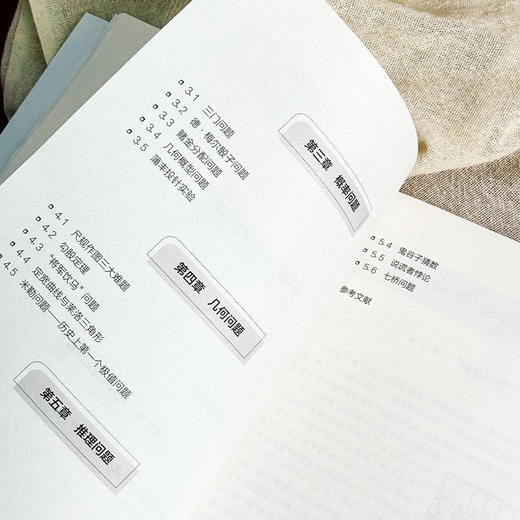 第三章 概率问题
3.1 三门问题
3.2 德·梅尔骰子问题
3.3 赌金分配问题
3.4 几何概型问题
3.5 蒲丰投针实验
第四章 几何问题
4.1 尺规作图三大难题
4.2 勾股定理
4.3 “将军饮马”问题
4.4 定宽曲线与莱洛三角形
4.5 米勒问题——历史上第一个极值问题
第五章 推理问题
5.4 鬼谷子猜数
5.5 说谎者悖论
5.6 七桥问题
参考文献